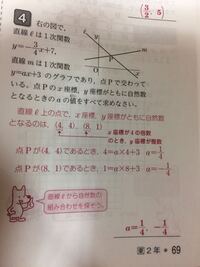 (3/2, 5)
4 右の図で,
直線ℓは1次関数
y=-3/4x+7,
直線mは1次関数
y=ax+3 のグラフであり, 点Pで交わって
いる。点Pの x座標, y座標がともに自然数
となるときの a の値をすべて求めなさい。
y
ℓ
m
P
O
x
直線ℓ上の点で, x座標, y座標がともに自然数
となるのは, (4, 4), (8, 1)
x座標が4の倍数
のとき, y座標が整数
点Pが(4, 4)であるとき, 4=a×4+3 a=1/4
点Pが(8, 1)であるとき, 1=a×8+3 a=-1/4
直線ℓから自然数の
組み合わせを探そう。
a=1/4, -1/4
2年 69